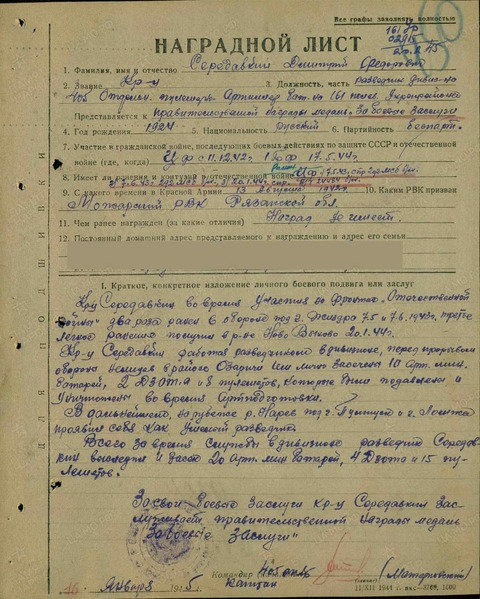 Все графы заполнять полностью
НАГРАДНОЙ ЛИСТ
1. Фамилия, имя и отчество Середавкин Дмитрий
2. Звание Кр-ц 3. Должность, часть разведчик дивиз-на
405 Отдельн. пулеметн. Арт. 161
Представляется к правительственной награде медаль "За Боевые Заслуги
4. Год рождения 1924 5. Национальность Русский 6. Партийность Беспарт.
7. Участие в гражданской войне, последующих боевых действиях по защите СССР и отечественной
войне (где, когда) ЦФ с 11.12.42г. 1 БФ 17.5.44г.
8. Имеет ли ранения и контузии в отечественной войне
9. С какого времени в Красной Армии 13 Августа 1942г 10. Каким РВК призван
Можарский РВК Рязанской обл.
11. Чем ранее награжден (за какие отличия) Наград не имеет.
12. Постоянный домашний адрес представляемого к награждению и адрес его семьи
I. Краткое, конкретное изложение личного боевого подвига или заслуг
Кр-ц Середавкин во время Участия на фронте "Отечественной
войны" два раза ранен в обороне под г. Жиздра 7.5 и 7.6.1943г. третье
легкое ранение получил в р-не Ново 20.1.44г.
Кр-ц Середавкин работая разведчиком в дивизионе, перед прорывом
обороны немцев в районе Озаричи им лично засечено 10 Арт. мин.
батарей, 2 Дзота и 8 пулеметов, которые были подавлены и
Уничтожены во время Артподготовки.
В дальнейшем, на рубеже р. Нарев под г. Пултуск и г. Ломжа
проявил себя как Умелый разведчик.
Всего за время Службы в дивизионе разведчик Середав-
кин выследил и засек 20 арт. мин батарей, 4 Дзота и 15 пу-
леметов.
За свои боевые заслуги кр-ц Середавкин зас-
луживает правительственной награды медаль
"За боевые Заслуги"
Командир
Капитан
16 Января 1945г.
11/XII 1944 г.